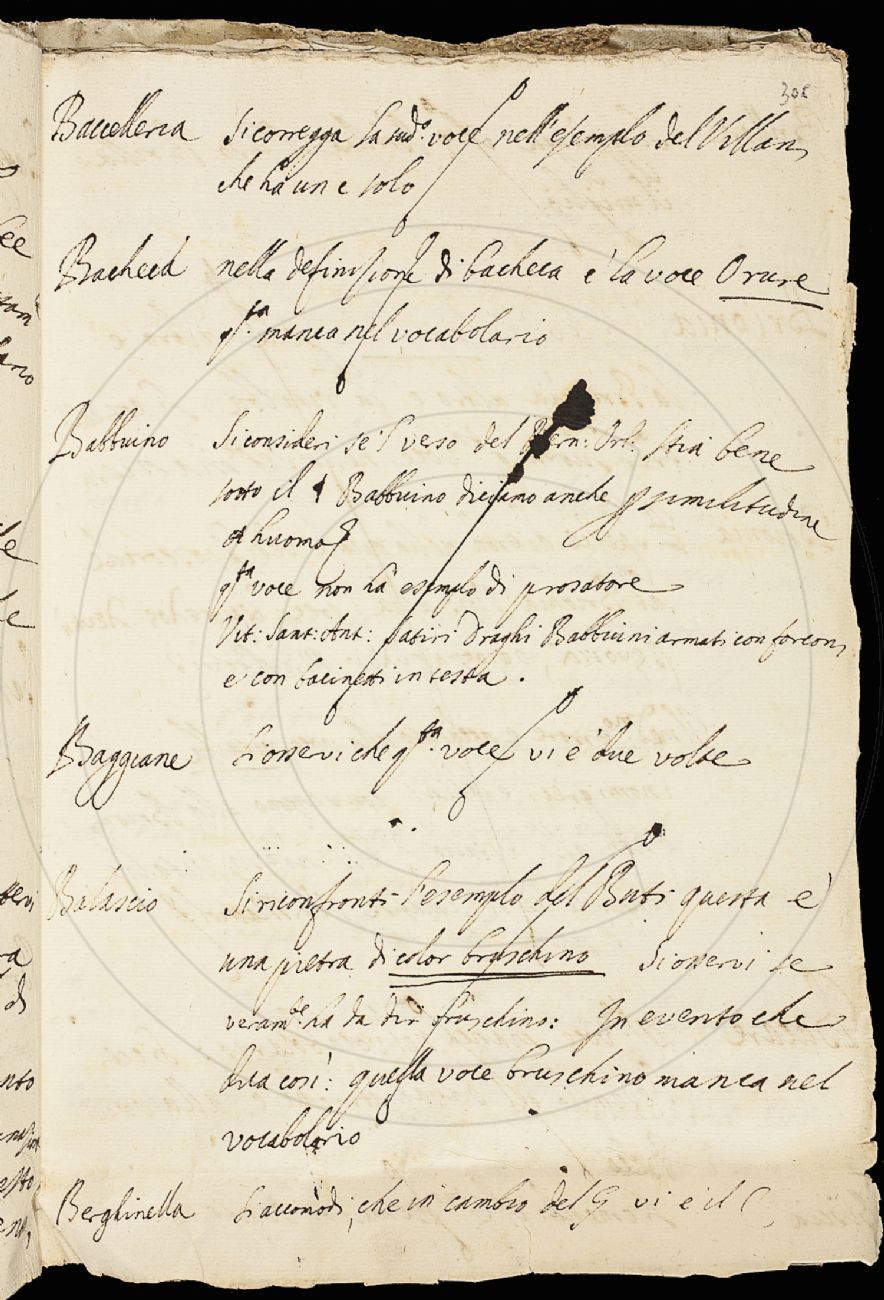 308
Baccelleria Si corregga la sud.ª voce nell'esempio del Villan,
che ha un c solo
Bacheca nella definizione di bacheca è la voce Orare
q.ta manca nel vocabolario
Babbuino Si consideri se 'l verso del Bern: Orl: stia bene
sotto il § Babbuino diciamo anche p similitudine
a huomo
q.ta voce non ha esempio di prosatore
Vit: Sant: Ant: Satiri Draghi Babbuini armati con forcon,
e con bacinetti in testa.
Baggiane Si osservi che q.ta voce vi è due volte
Balascio Si riconfronti l'esempio del Buti questa è
una pietra di color bruschino Si osservi se
veram.te ha da dir fruschino: In evento che
dica così: quella voce bruschino manca nel
vocabolario
Berghinella Si accomodi, che in cambio del G vi è il C